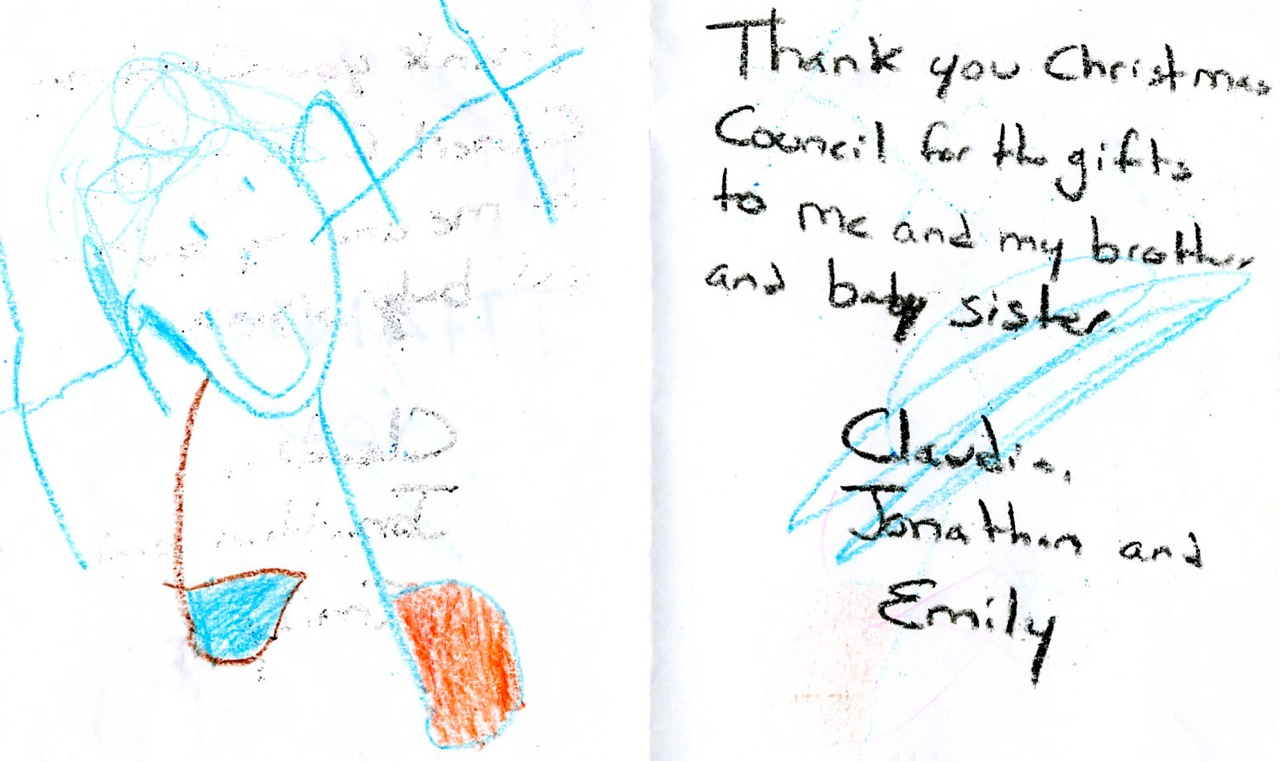 Thank you Christmas
Council for the gifts
to me and my brother
and baby sister.
Claudia,
Jonathan and
Emily